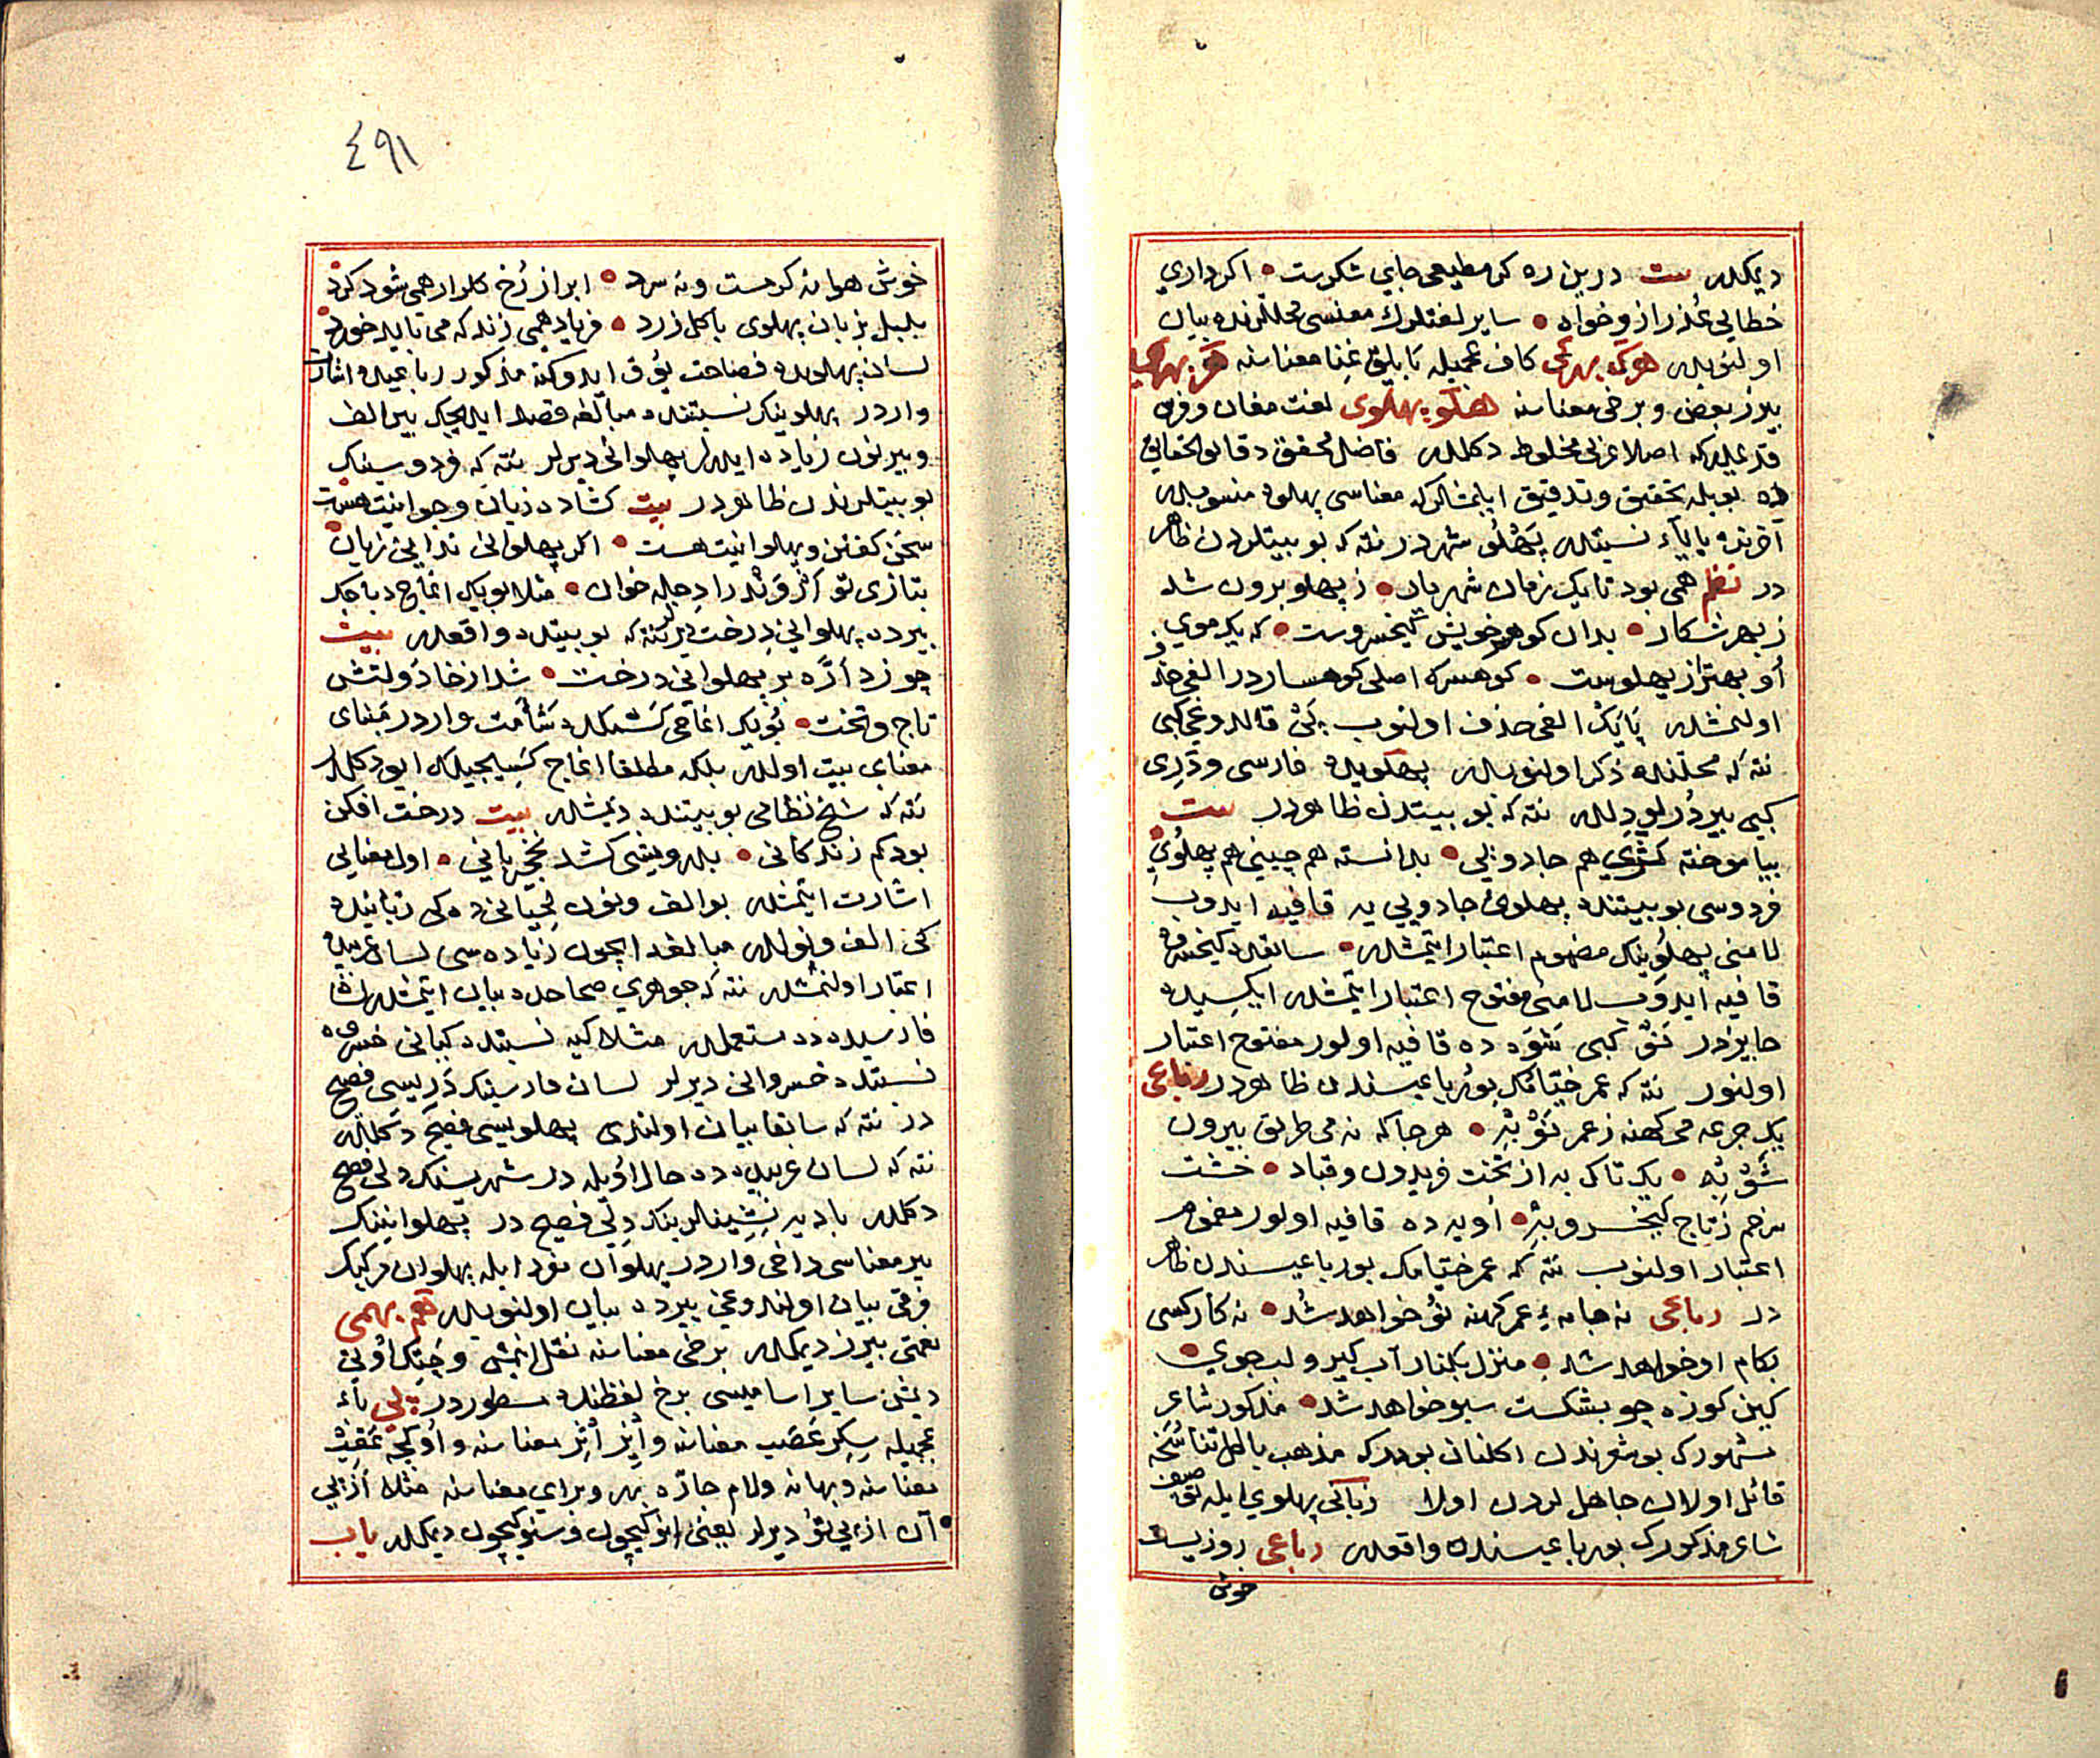 دیمکدر بیت درین ره کر مطیعی جای شکرست • اکر داری
خطایی عُذر ازو خواه • سایر لغتلرك معنسی محللرنده بیان
اولنوبدر کاف عجمیله بایلق غِنا معناسنه
بیرز بعض و برخی معناسنه پهلو پهلوی لغت مغان و فرس
قدیمیدر که اصلا عربی مخلوط دکلدر فاضل محقق دقایق الحقایق
ده بویله تحقیق و تدقیق ایلمشلرکه معناسی پهلوه منسوبدر
آخرنده یا یاء نسبتدر پَهْلَو شهر در نته که بو بیتلردن ظاهر
در نظم همی بود تا یک زمان شهریار • ز پهلو برون شد
ز بهر شکار • بدان کوهر خویش کیخسروست • که یک موی
او بهتر از پهلوست • کوهسرك اصلی کوهسار در الفی حذف
اولنمشدر پایك الفی حذف اولنوب پَیْ قالدوغی کبی
نته که محلنده ذکر اولنوبدر پهلویده فارسی و دَرِی
کبی بیر دُرلو دِلدر نته که بو بیتدن ظاهر در بیت
بیاموخته کشوی هم جادویی • بدانسته هم چینی هم پهلُویِ •
فردوسی بو بیتنده پهلوی جادویی یه قافیه ایدوب
لامنی پهلوینك مضموم اعتبار ایتمشدر • سابقده کیخسروه
قافیه ایدوب لامنی مفتوح اعتبار ایتمشدر ایکسیده
جایزدر نَوْ کبی شَوَه ده قافیه اولور مفتوح اعتبار
اولنور نته که عمر خیامك بو رباعیسندن ظاهر در رباعی
یک جرعه می کهنه ز عمر نَوْ بِه • هر جا که نه می طریق بیرون
شَوْ بِه • یک تاک به از تخت فریدون و قباد • خشت
سر خم ز تاج کیخسرو به • اویه ده قافیه اولور مضموم
اعتبار اولنوب نته که عمر خیامك بو رباعیسندن ظاهر
در رباعی نه جامهٔ عمر کهنه نوُ خواهد شُد • نه کار کسی
بکام او خواهد شد • منزل بکنار آب کیر و لب جوی •
کین کوزه چو بشکست سبو خواهد شد • مذکور شاعر
مشهورك بو شعرندن اکلنان بودر که مذهب باطل تناسُخه
قائل اولان جاهللردن اولا زبانی پهلوی ایله
شاعر مذکورك بو رباعیسنده واقعدر رباعی روزیست
خوش
٤٩١
خوش هوا نه کرمست و نه سرد • ابر از رُخ کلزار همی شود کرد •
بلبل بزبان پهلوی با کل زرد • فریاد همی زند که می باید خورد •
لسان پهلویده فصاحت یُوق ایدوکنه مذکور رباعیده اشارت
واردر پهلوینك نسبتنده مبالغه قصد ایدیجك بیر الف
و بیر نون زیاده ایدرلر پهلوانی دیرلر نته که فردوسینك
بو بیتلرندن ظاهر در بیت کشاده زبان و جوانیت هست •
سخن کفتن و پهلوانیت هست • اکر پهلوانی ندانی زبان •
بتازی تو اروند را دجله خوان • مثلا بویك اغاج دباجك
بیرده پهلوانی درخت دیرلر نته که بو بیتده واقعدر بیت
چو زد اَرَّه بر پهلوانی درخت • شد از خا دَولتش
تاج و تخت • بُویك اغاجی کَسْمکده شأمت واردر مَبنای
معنای بیت اولدر بلکه مطلقا اغاج کَسیجیلك ایو دکلدر
نته که شیخ نظامی بو بیتنده دیمشدر بیت درخت افکن
بود کم زندکانی • بدرویشی کشد نخچیربانی • اول معنایی
اشارت ایتمشدر بو الف و نون لحیانی ده کی رَبّانیده
کی الف و نوندر مبالغه ایچون زیاده سی لسان عربیده
اعتبار اولنمشدر نته که جوهری صحاحده بیان ایتمشدر
فارسیده ده مستعملدر مثلا کیه نسبتده کیانی خسروه
نسبتده خسروانی دیرلر لسان فارسینك دَرِیسی فصیح
در نته که سابقا بیان اولندی پهلویسی فصیح دکلدر
نته که لسان عربیده ده حال اویله در شهرسنك دلی فصیح
دکلدر بادیه نشینالرینك دِلی فصیح در پهلوانینك
بیر معناسی داخی واردر پهلوان مفرد ایله پهلوان مرکبك
فرقی بیان اولندوغی بیرده بیان اولنوبدر
یعنی بیرز دیمکدر برخی معناسنه نقل ایتمش
دیمش سایر اسامیسی برخ لفظنده مسطور در پی باء
عجمیله سِکِر عَصَب معناسنه و اِیْز اَثَر معناسنه و اُوکجه عَقِب
معناسنه و بهانه و لام جارّه بهر و برای معناسنه مثلا اَز پی
آن از پی توُ دیرلر یعنی انوکیچون و سنوکیچون دیمکدر یاب